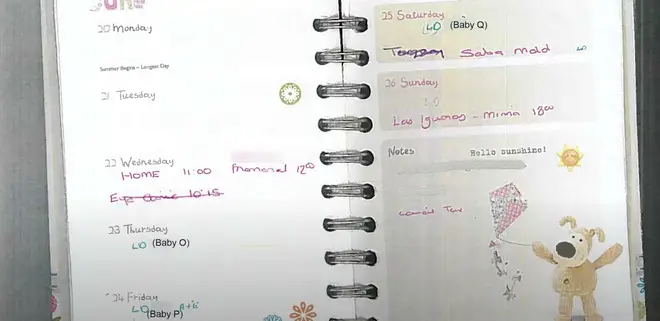 JUNE
20 Monday
Summer Begins – Longest Day
21 Tuesday
22 Wednesday
HOME 11:00
12⁰⁰
Eye Clinic 10:15
23 Thursday
LD (Baby O)
24 Friday
LD A+E
(Baby P)
25 Saturday
LD (Baby Q)
Saba Mold LD
26 Sunday
LD
Las Iguanas – Mima 18⁰⁰
Notes
Hello sunshine!